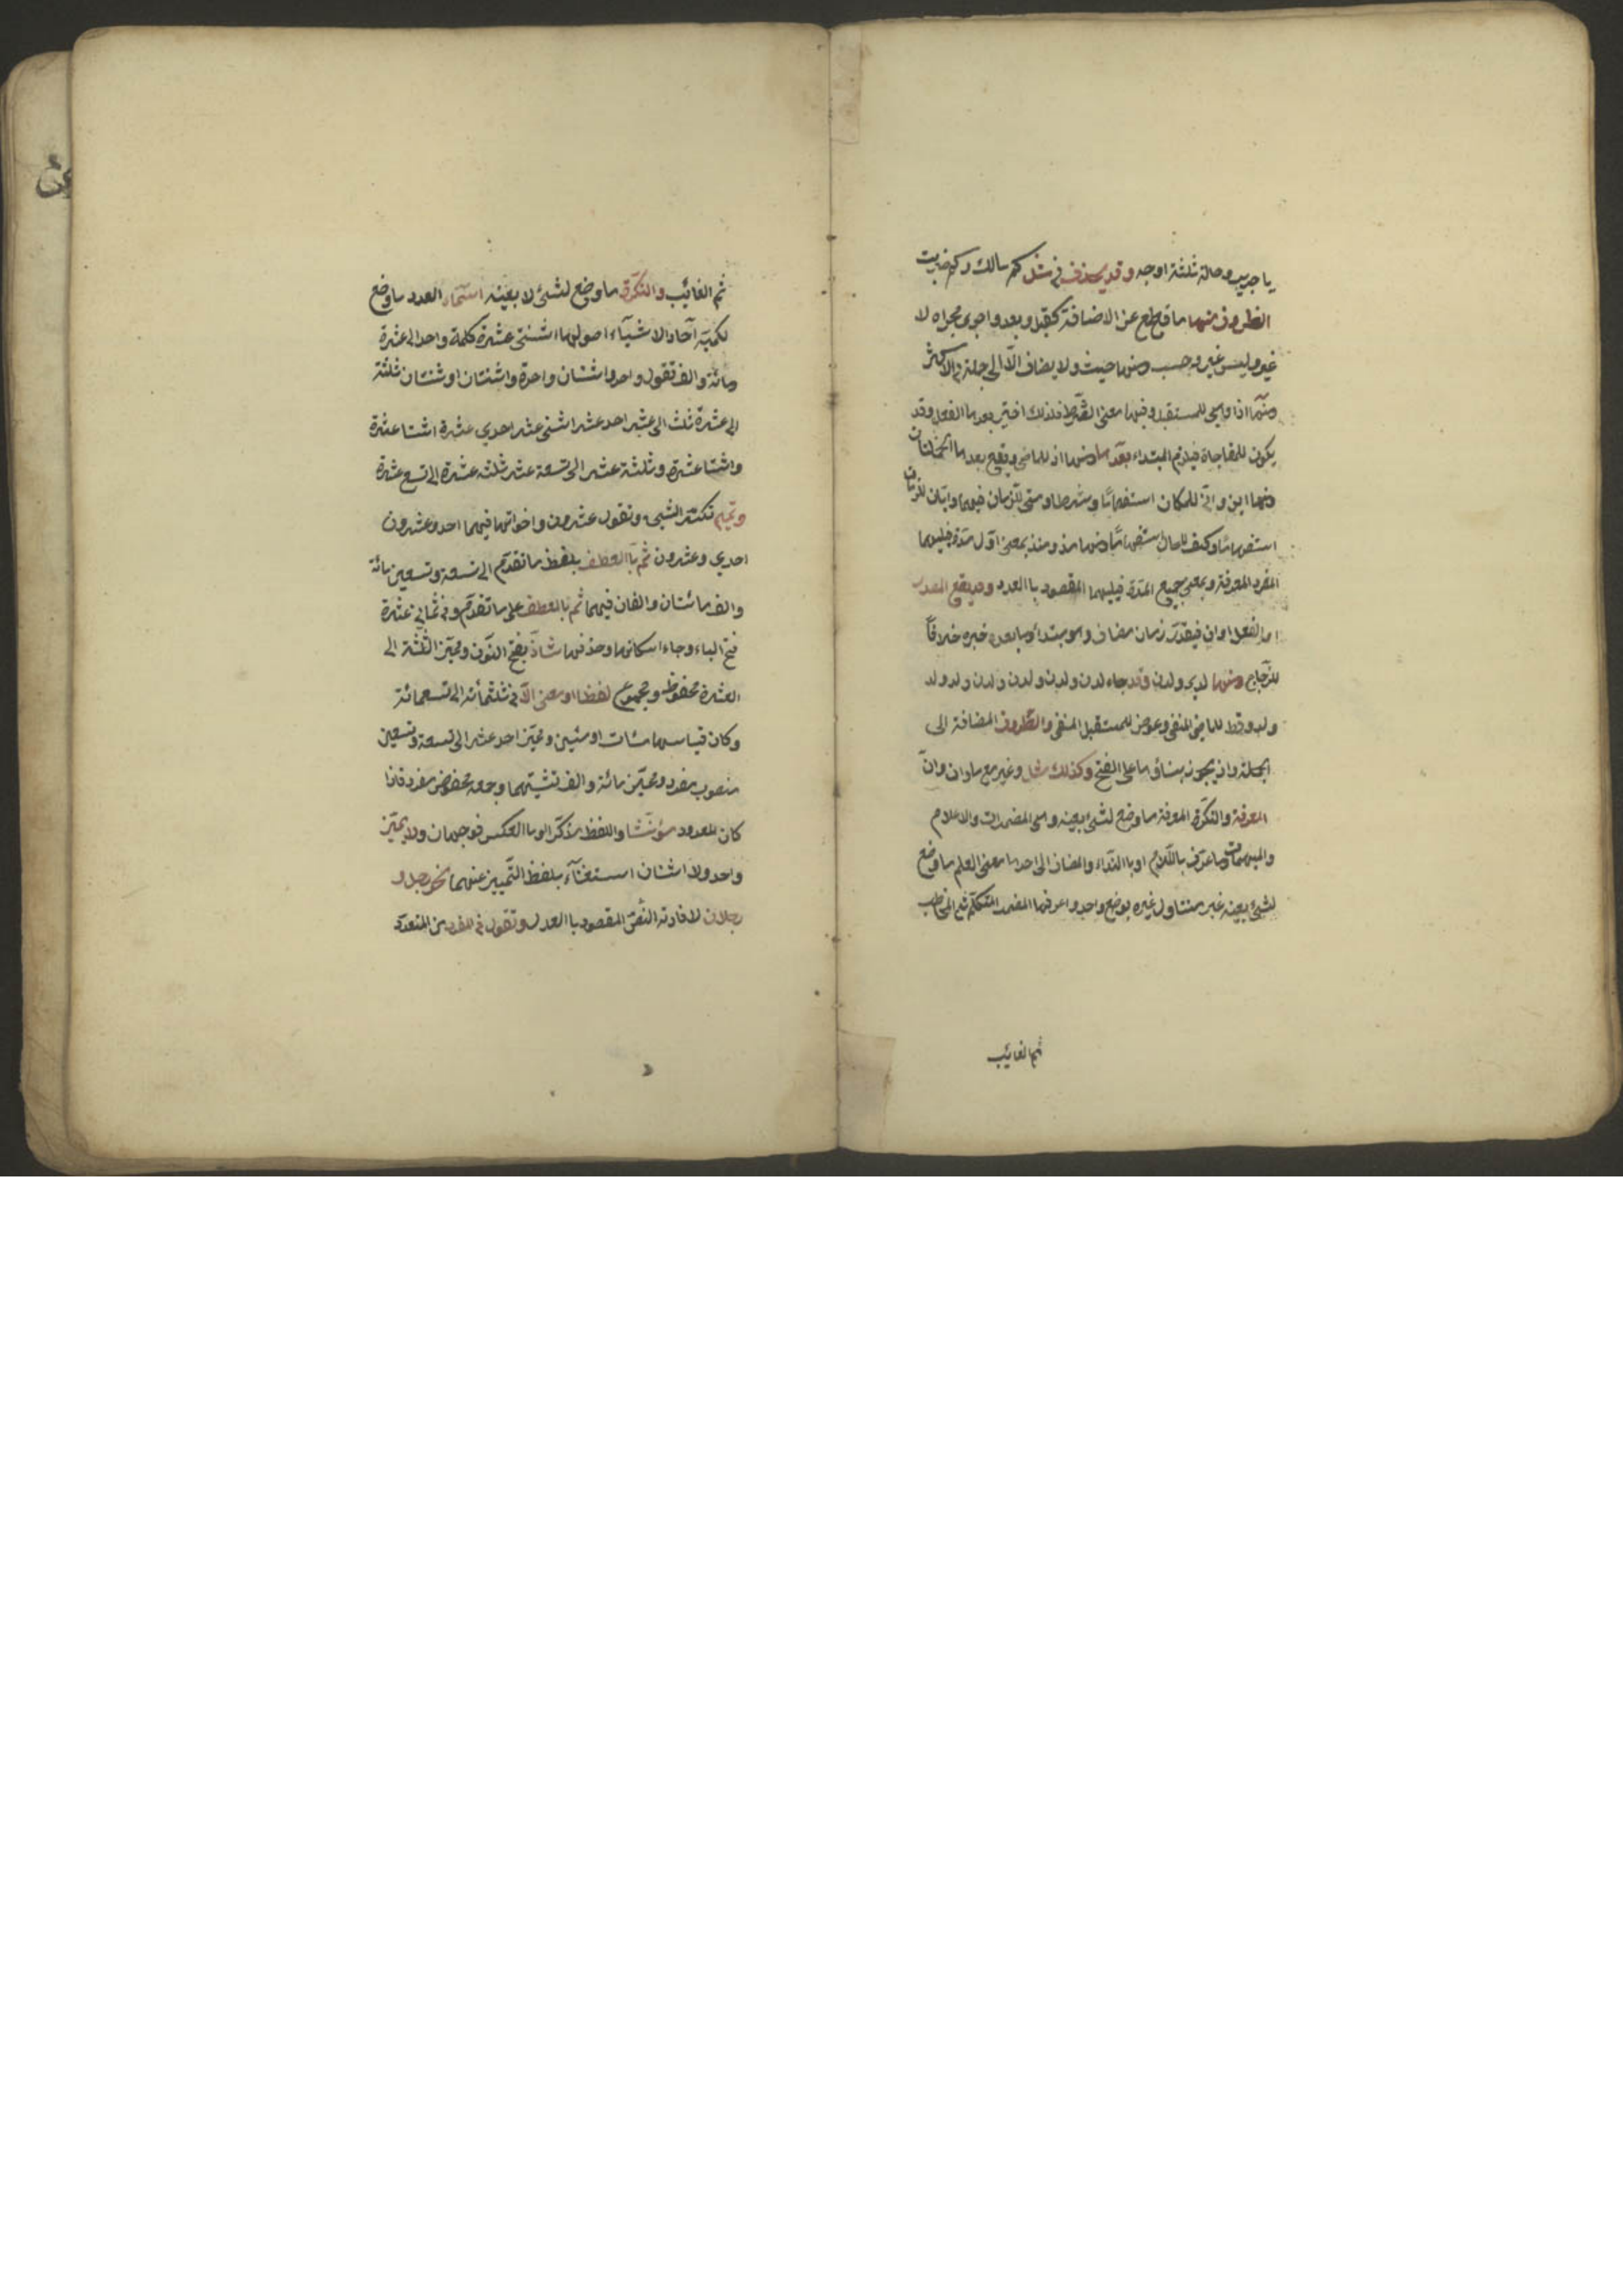 يا جرير وخالة ثلثة اوجه وقد يحذف في مثل كم مالك وكم ضربت
الظروف منها ما قطع عن الاضافة كقبل وبعد واجرى مجراه لا
غير وليس غير وحسب ومنها حيث ولا يضاف الا الى جملة في الاكثر
ومنها اذا وهى للمستقبل وفيها معنى الشرط فلذلك اختير بعدها الفعل وقد
يكون للمفاجاة فيلزم المبتداء بعدها ومنها اذ للماضى ويقع بعدها الجملتان
ومنها اين وانى للمكان استفهاما وشرطا ومتى للزمان فيهما وايان للزمان
استفهاما وكيف للحال استفهاما ومنها مذ ومنذ بمعنى اول مدة فيليهما
المفرد المعرفة وبمعنى جميع المدة فيليهما المقصود باالعدد وقد يقع المصدر
او الفعل او ان فيقدر زمان مضاف وهو مبتداء وما بعده خبره خلافاً
للزجاج ومنها لدى ولدن وقد جاء لدن ولدن ولدن ولدن ولد ولد
ولد وقط للماضى المنفى وعوض للمستقبل المنفى والظروف المضافة الى
الجملة واذ يجوز بناؤها على الفتح وكذلك مثل وغير مع ما وان وانّ
المعرفة والنكرة المعرفة ما وضع لشئ بعينه وهى المضمرات والاعلام
والمبهمات وما عرف باللام او باالنداء والمضاف الى احدها معنى العلم ما وضع
لشئ بعينه غير متناول غيره بوضع واحد واعرفها المضمر المتكلم ثم المخاطب
ثم الغايب
ثم الغائب والنكرة ما وضع لشئ لا بعينه اسماء العدد ما وضع
لكمية آحاد الاشياء اصولها اثنتى عشرة كلمة واحد الى عشرة
ومائة والف تقول واحد واثنان واحدة واثنتان او ثنتان ثلثة
الى عشرة ثلث الى عشر احد عشر اثنى عشر احدى عشرة اثنتا عشرة
واثنتا عشرة وثلثة عشر الى تسعة عشر ثلثه عشرة الى تسع عشرة
وتميم تكسر الشين وتقول عشرون واخواتها فيهما احد وعشرون
احدى وعشرون ثم باالعطف بلفظ ما تقدم الى تسعة وتسعين مائة
والف مائتان والفان فيهما ثم بالعطف على ما تقدم وفى ثمانى عشرة
فتح الياء وجاء اسكانها وحذفها شاذ بفتح النون ومميز الثلثة الى
العشرة مخفوظ ومجموع لفظا او معنى الا فى ثلثمائة الى تسعمائة
وكان قياسها مئات او مئين ومميز احد عشر الى تسعة وتسعين
منصوب مفرد ومميز مائة والف وتثنيتهما وجمعه مخفوض مفرد فاذا
كان المعدود مؤنثا واللفظ مذكرا او باالعكس فوجهان ولا يميز
واحد ولا اثنان استغناء بلفظ التمييز عنهما نحو رجل و
رجلان لافادته النص المقصود باالعدد وتقول فى المفرد من المتعدد